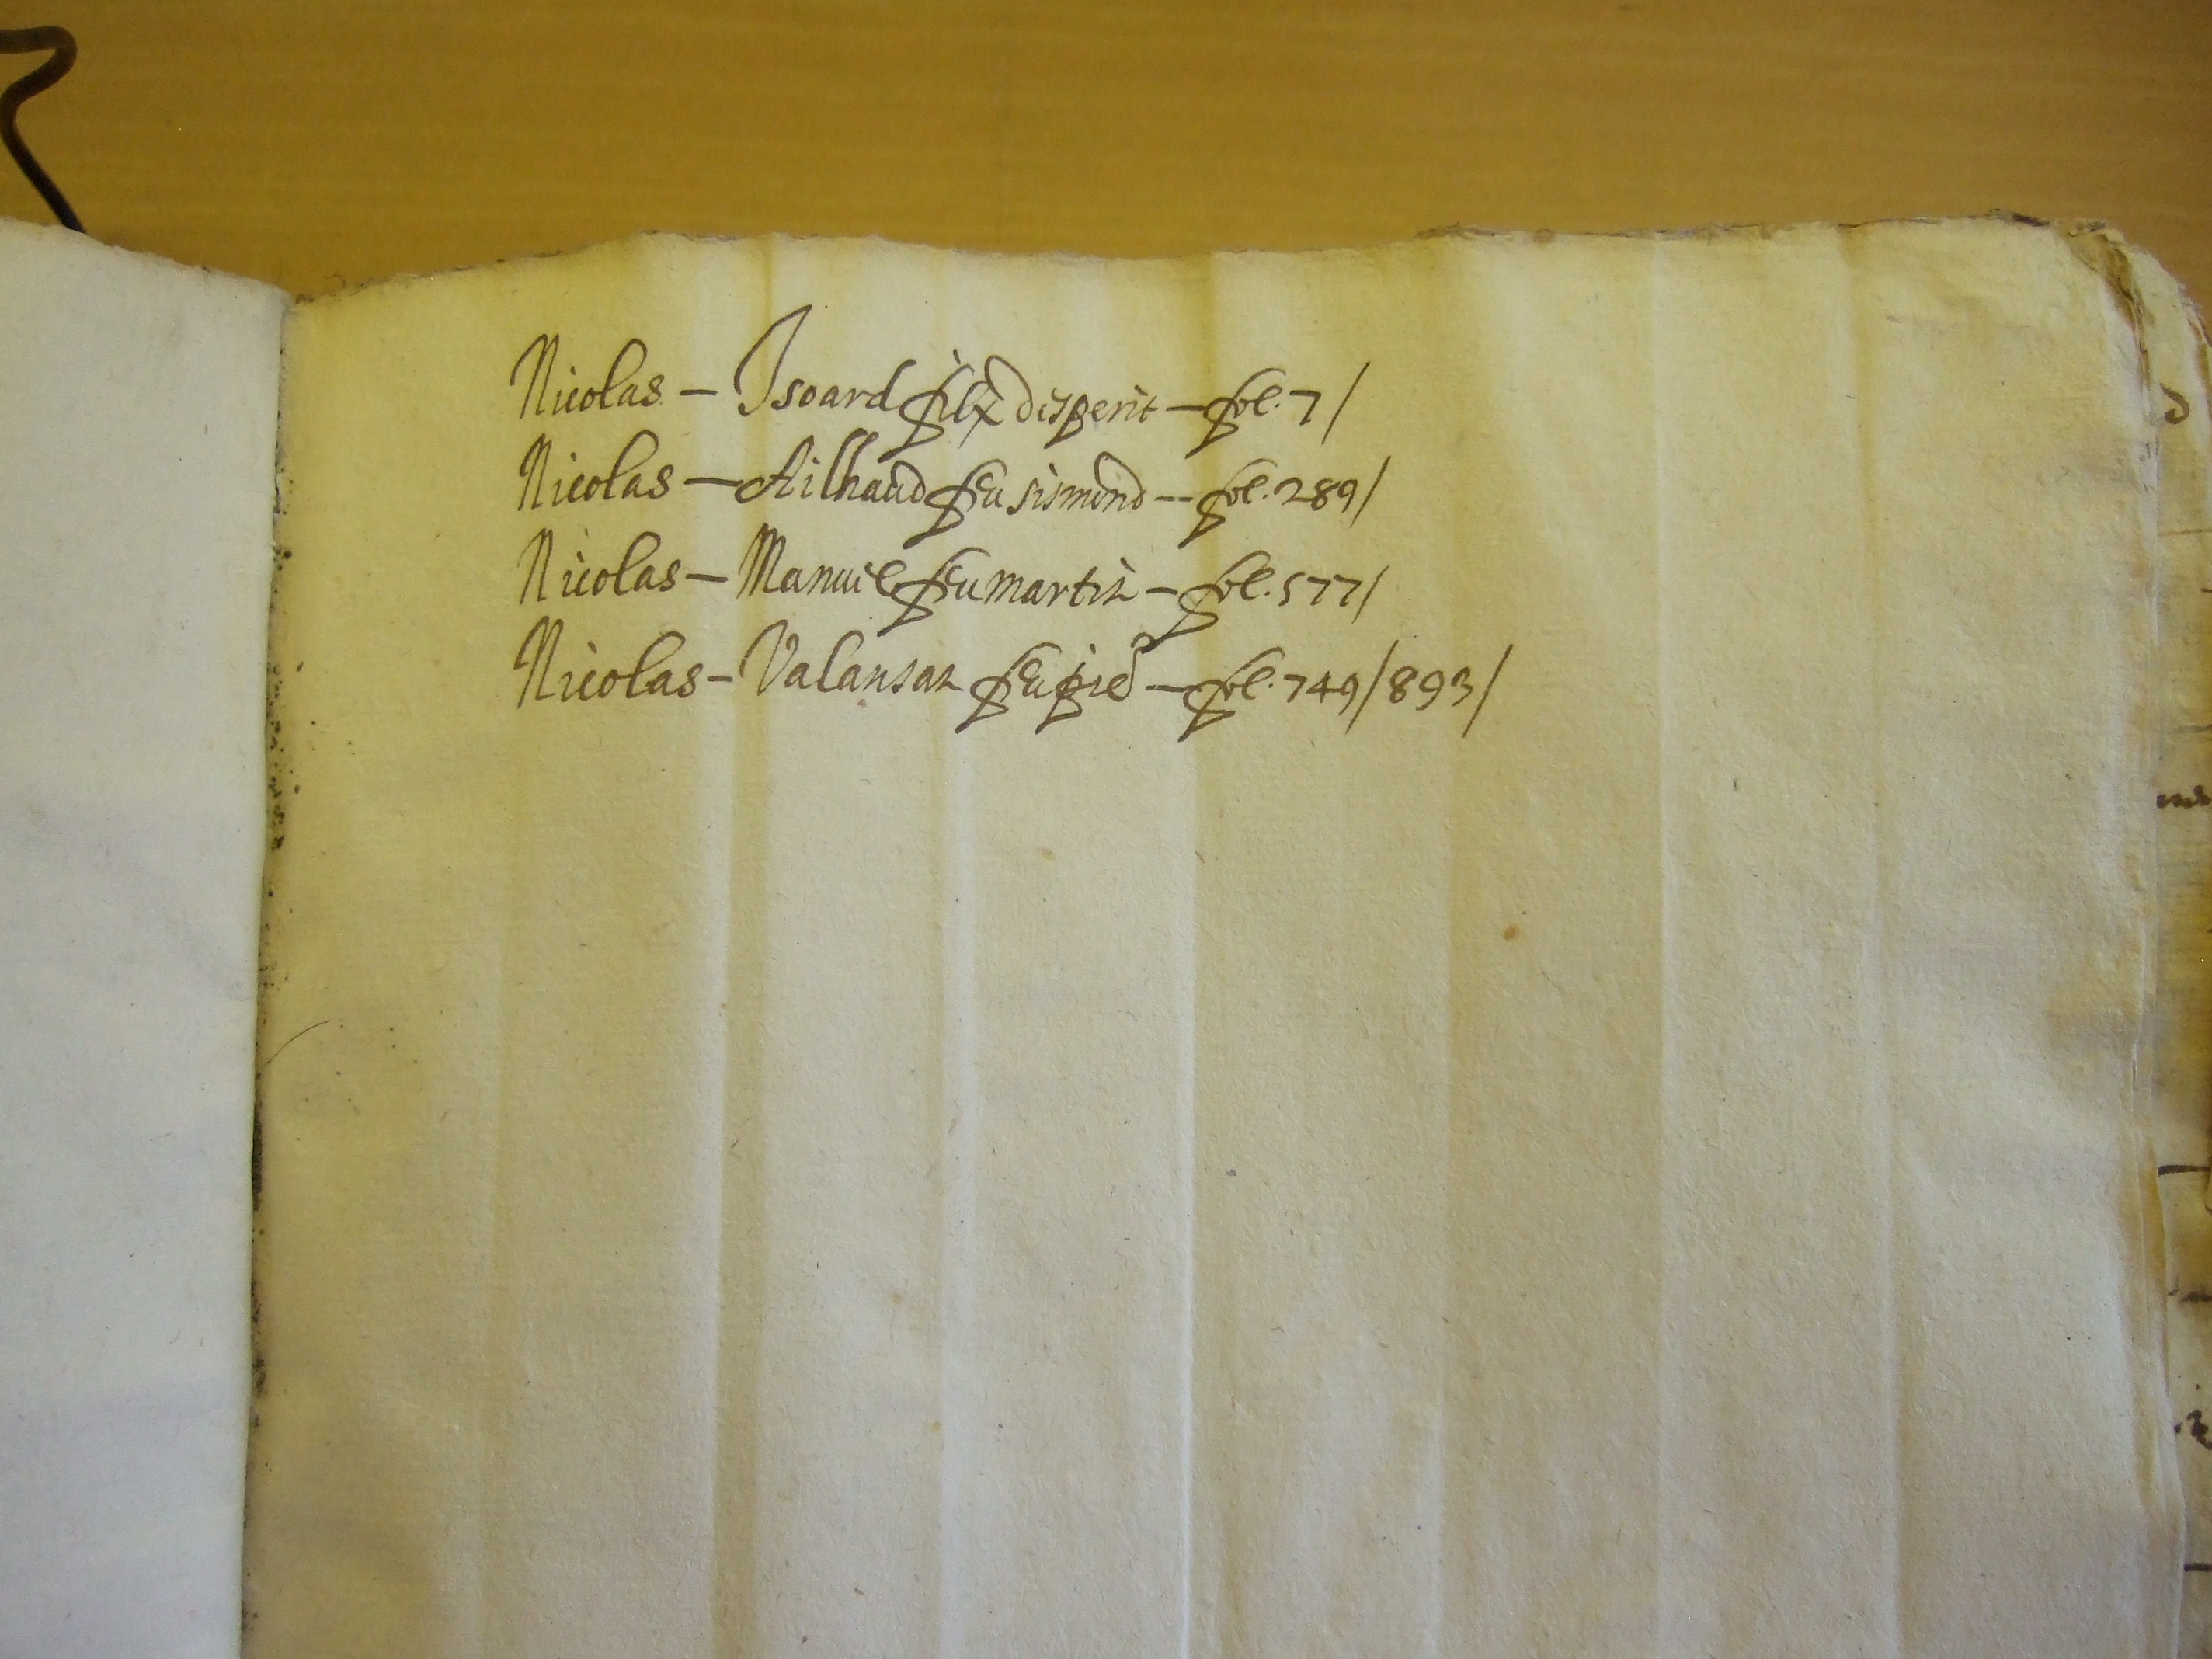 Nicolas – Isoard filz desperit – fol. 7/
Nicolas – Ailhaud feu sismond – fol. 289/
Nicolas – Manuel feu martin – fol. 577/
Nicolas – Valansan feu pied – fol. 749/893/